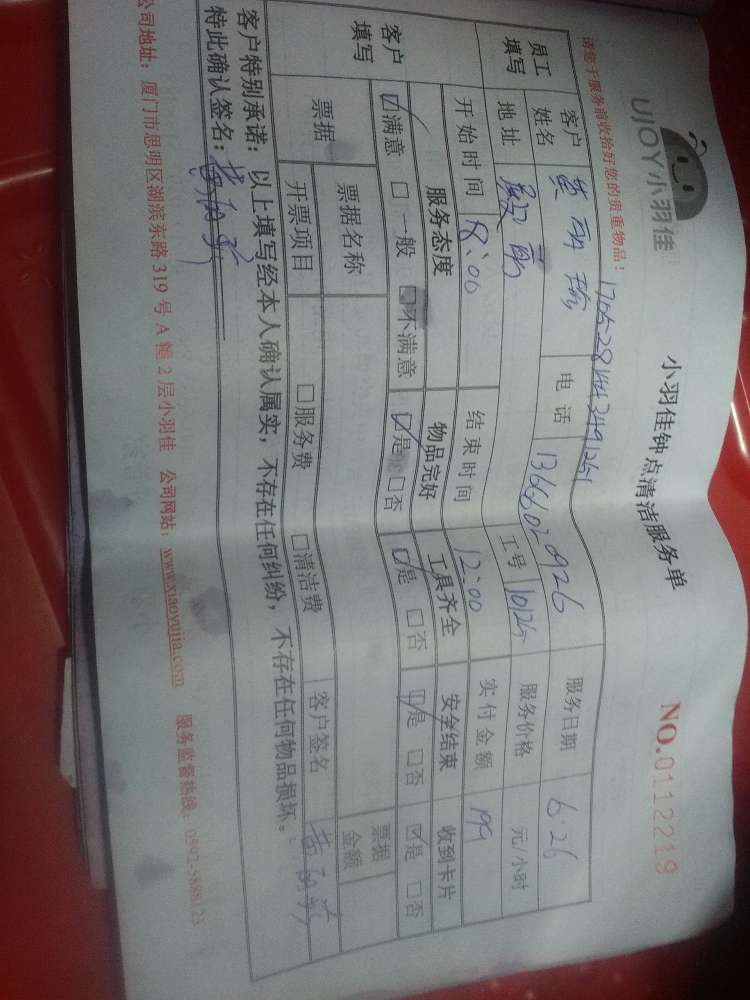 UJOY小羽佳
小羽佳钟点清洁服务单
NO.0112219
请您于服务前收拾好您的贵重物品！
员工填写 客户姓名 电话 13666020926 服务日期 6.26
地址 工号 10125 服务价格 元/小时
开始时间 8:00 结束时间 12:00 实付金额 199
客户填写 服务态度 物品完好 工具齐全 安全结束 收到卡片
☑满意 □一般 □不满意 ☑是 □否 ☑是 □否 ☑是 □否 ☑是 □否
票据 票据名称 票据金额
开票项目 □服务费 □清洁费 客户签名
客户特别承诺：以上填写经本人确认属实，不存在任何纠纷，不存在任何物品损坏。
特此确认签名：
公司地址：厦门市思明区湖滨东路319号A幢2层小羽佳 公司网站：www.xiaoyujia.com 服务监督热线：0592-5888123